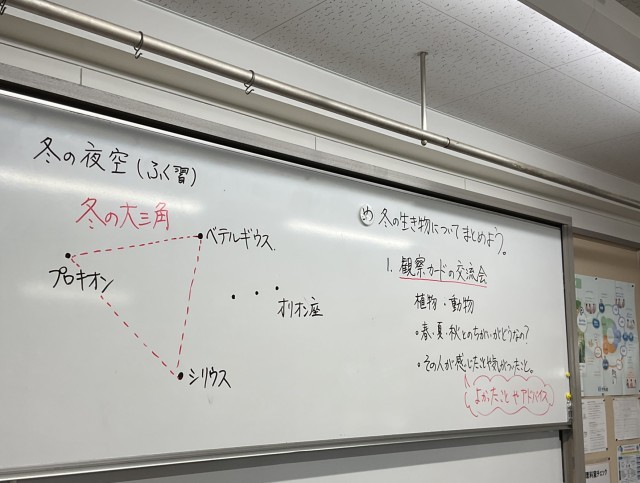 冬の夜空(ふく習)
冬の大三角
ベテルギウス
プロキオン
オリオン座
シリウス
め 冬の生き物についてまとめよう。
1. 観察カードの交流会
植物・動物
・春・夏・秋とのちがいがどうなの?
・その人が感じたことや気がついたこと。
よかったことやアドバイス